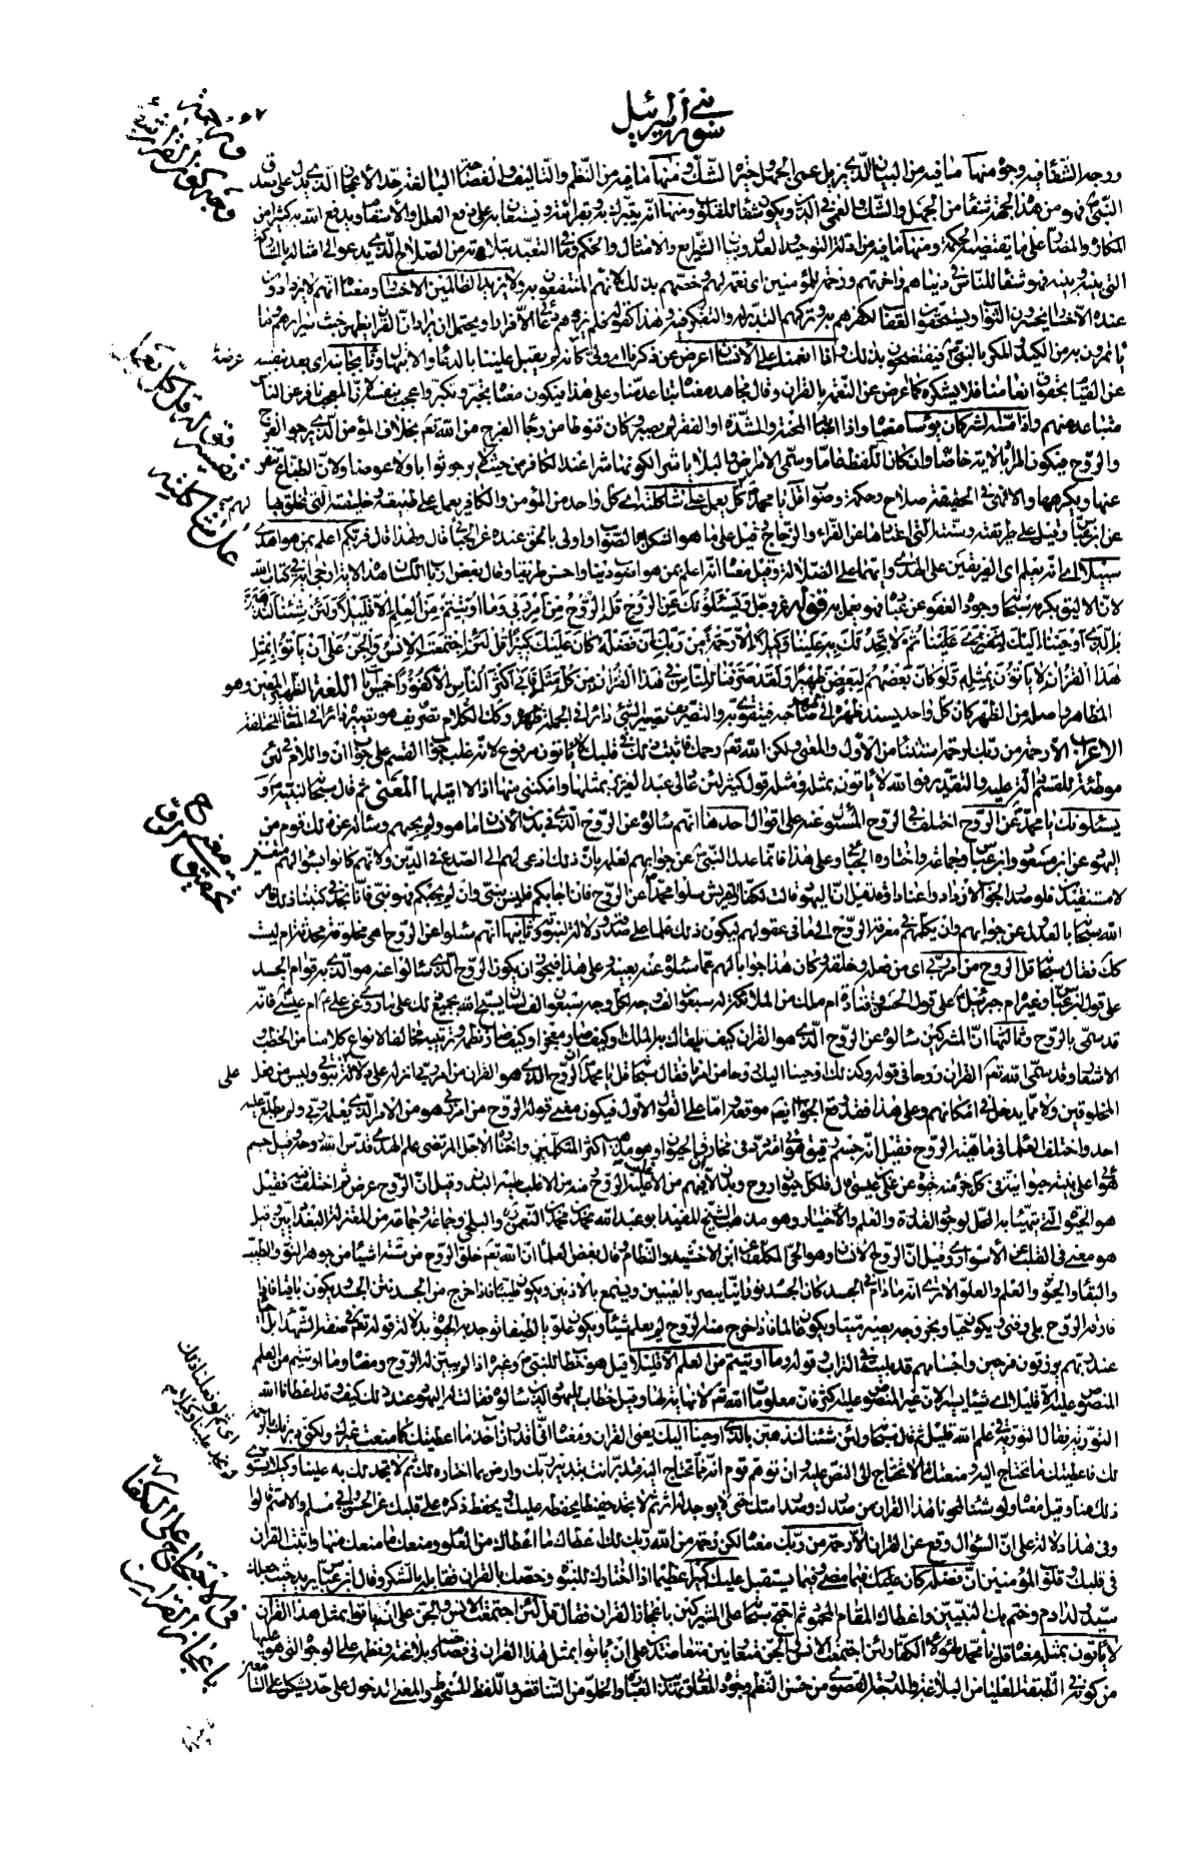 سورة بني اسرائيل
ووجه الشفاء فيه وجوه منها ما فيه من البيان الذي يزيل عمى الجهل وحيرة الشك ومنها ما فيه من النظم والتاليف والفصاحة البالغة حد الاعجاز الذي يدل على صدق
النبي فهو من هذه الجهة شفاء من الجهل والشك والعمى في الدين ويكون شفاء للقلوب ومنها انه يتبرك به وبقرائته ويستعان به على دفع العلل والاسقام ويدفع الله به كثيرا من
المكاره والمضار على ما يقتضيه الحكمة ومنها ما فيه من ادلة التوحيد والعدل وبيان الشرايع والامثال والحكم وما في التعبد بتلاوته من الصلاح الذي يدعو الى امثاله بالمشاركة
التي بينه وبينه فهو شفاء للناس في دنياهم واخرتهم ورحمة للمؤمنين اي نعمة لهم وخصهم بذلك لانهم المنتفعون به ولا يزيد الظالمين الا خسارا ومعناه انهم لا يزدادون
عنده الا خسارا يخسرون الثواب ويستحقون العقاب لكفرهم به وتركهم التدبر له والتفكر فيه وهذا كقوله فلم يزدهم دعائي الا فرارا ويحتمل ان يراد ان القران يظهر خبث سرايرهم وما
ياتمرون به من الكيد والمكر بالنبي فيفتضحون بذلك واذا انعمنا على الانسان اعرض عن ذكرنا اي ولى كانه لم يقبل علينا بالدعاء والابتهال ونا بجانبه اي بعد بنفسه
عن القيام بحقوق انعامنا فلا يشكره كما اعرض عن النعمة بالقران وقال مجاهد معناه تباعد منا وعلى هذا فيكون معناه تجبر وتكبر واعجب بنفسه لان المعجب نافر عن الناس
متباعد عنهم واذا مسه الشر كان يؤسا معناه واذا اصابه المحنة والشدة او الفقر لم يصبر وكان قنوطا من رجاء الفرج من الله تعم بخلاف المؤمن الذي يرجو الفرج
والروح فيكون المراد بالاية خاصا وان كان اللفظ عاما وسمى الامراض والبلايا شرا لكونها شرا عند الكافر من حيث لا يرجو ثوابا ولا عوضا ولان الطباع تنفر
عنها ويكرهها والا فهي في الحقيقة صلاح وحكمة وصواب قل يا محمد كل يعمل على شاكلته اي كل واحد من المؤمن والكافر يعمل على طبيعته وخليقته التي تخلق بها
عن ابن عباس وقيل على طريقته وسنته التي اعتادها عن الفراء والزجاج وقيل على ما هو اشكل بالصواب واولى بالحق عنده عن الجبائي قال ولهذا قال فربكم اعلم بمن هو اهدى
سبيلا اي انه يعلم اي الفريقين على الهدى وايهما على الضلالة وقيل معناه انه اعلم بمن هو اصوب دينا واحسن طريقا وقال بعض ارباب اللسان هذه الاية ارجى اية في كتاب الله
لان الاليق بكرمه سبحانه وجوده العفو عن عباده فهو يعمل به قوله عز وجل ويسئلونك عن الروح قل الروح من امر ربي وما اوتيتم من العلم الا قليلا ولئن شئنا لنذهبن
بالذي اوحينا اليك ثم لا تجد لك به علينا وكيلا الا رحمة من ربك ان فضله كان عليك كبيرا قل لئن اجتمعت الانس والجن على ان ياتوا بمثل
هذا القران لا ياتون بمثله ولو كان بعضهم لبعض ظهيرا ولقد صرفنا للناس في هذا القران من كل مثل فابى اكثر الناس الا كفورا خمس ايات اللغة الظهير المعين وهو
المظاهر واصله من الظهر كان كل واحد يسند ظهره الى ظهر صاحبه فيتقوى به والتصريف تصيير الشيء دائرا في الجهات وكذلك الكلام تصريفه هو تصييره دائرا في المعاني المختلفة
الاعراب الا رحمة من ربك رحمة استثناء من الاول والمعنى ولكن الله تعم رحمك فاثبت ذلك في قلبك لا ياتون مرفوع لانه غلب جواب القسم على جواب ان واللام في لئن
موطئة للقسم والتقدير فوالله لا ياتون بمثله ومثله قول كثير لئن عاد لي عبد العزيز بمثلها وامكنني منها اذا لا اقيلها المعنى ثم قال سبحانه لنبيه و
يسئلونك يا محمد عن الروح اختلف في الروح المسئول عنه على اقوال احدها انهم سالوه عن الروح الذي في بدن الانسان ما هو ولم يجبهم وساله عن ذلك قوم من
اليهود عن ابن مسعود وابن عباس وجماعة واختاره الجبائي وعلى هذا فانما عدل النبي عن جوابهم لعلمه بان ذلك ادعى لهم الى الصلاح في الدين ولانهم كانوا بسؤالهم متعنتين
لا مستفيدين فلو صدر الجواب لازدادوا عنادا وقد قيل ان اليهود قالت لكفار قريش سلوا محمدا عن الروح فان اجابكم فليس بنبي وان لم يجبكم فهو نبي فانا نجد في كتبنا ذلك فامر
الله سبحانه بالعدول عن جوابهم وان يكلهم في معرفة الروح الى ما في عقولهم ليكون ذلك علما على صدقه ودلالة لنبوته وثانيها انهم سئلوا عن الروح اهي مخلوقة محدثة ام ليست
كذلك فقال سبحانه قل الروح من امر ربي اي من فعله وخلقه وكان هذا جوابا لهم عما سئلوه عنه بعينه وعلى هذا فيجوز ان يكون الروح الذي سالوا عنه هو الذي به قوام الجسد
على قول ابن عباس وغيره ام جبرئيل على قول الحسن وقتادة ام ملك من الملائكة له سبعون الف وجه لكل وجه سبعون الف لسان يسبح الله بجميع ذلك على ما روي عن علي ع ام عيسى فانه
قد سمي بالروح وثالثها ان المشركين سالوه عن الروح الذي هو القران كيف يلقاك به الملك وكيف صار معجزا وكيف صار نظمه وترتيبه مخالفا لانواع كلامنا من الخطب
والاشعار وقد سمى الله تعم القران روحا في قوله وكذلك اوحينا اليك روحا من امرنا فقال سبحانه قل يا محمد ان الروح الذي هو القران من امر ربي انزله علي دلالة على نبوتي وليس من فعل
المخلوقين ولا مما يدخل في امكانهم وعلى هذا فقد وقع الجواب ايضا موقعه واما على القول الاول فيكون معنى قوله الروح من امر ربي هو من الامر الذي يعلمه ربي ولم يطلع عليه
احد واختلف العلماء في ماهية الروح فقيل انه جسم رقيق هوائي متردد في مخارق الحيوان وهو مذهب اكثر المتكلمين واختاره الاجل المرتضى علم الهدى قدس الله روحه وقيل جسم
هوائي على بنية حيوانية في كل جزء منه حيوة عن علي بن عيسى قال فلكل حيوان روح وبدن الا ان منهم من الاغلب عليه الروح ومنهم من الاغلب عليه البدن وقيل ان الروح عرض ثم اختلف فيه فقيل
هو الحيوة التي يتهيا بها المحل لوجود القدرة والعلم والاختيار وهو مذهب الشيخ المفيد ابو عبد الله محمد بن محمد بن النعمان والبلخي وجماعة من المعتزلة البغداديين وقيل
هو معنى في القلب عن الاسواري وقيل ان الروح الانسان وهو الحي المكلف عن ابن الاخشيد والنظام وقال بعض العلماء ان الله تعم خلق الروح من ستة اشياء من جوهر النور والطيب
والبقاء والحيوة والعلم والعلو الا ترى انه ما دام في الجسد كان الجسد نورانيا يبصر بالعينين ويسمع بالاذنين ويكون طيبا فاذا خرج من الجسد نتن الجسد ويكون باقيا فاذا
فارقه الروح بلي وفني ويكون حيا وبخروجه يصير ميتا ويكون عالما فاذا خرج منه الروح لم يعلم شيئا ويكون علويا لطيفا توجد به الحيوة بدلالة قوله تعم في صفة الشهداء بل احياء
عند ربهم يرزقون فرحين واجسامهم قد بليت في التراب وقوله وما اوتيتم من العلم الا قليلا قيل هو خطاب للنبي وغيره اذ لم يبين له الروح ومعناه وما اوتيتم من العلم
المنصوص عليه الا قليلا اي شيئا يسيرا لان غير المنصوص عليه اكثر فان معلومات الله تعم لا نهاية لها وقيل خطاب لليهود الذين سالوه فقالت له اليهود عند ذلك كيف وقد اعطانا الله
التورية فقال التورية في علم الله قليل ثم قال سبحانه ولئن شئنا لنذهبن بالذي اوحينا اليك يعني القران ومعناه اني اقدر ان اخذ ما اعطيتك كما منعته غيرك ولكني دبرتك بالرحمة
لك فاعطيتك ما تحتاج اليه ومنعتك ما لا تحتاج الى النص عليه وان توهم قوم انه مما تحتاج اليه فتدبر انت بتدبير ربك وارض بما اختاره لك ثم لا تجد لك به علينا وكيلا يستوفي
ذلك منا وقيل معناه ولو شئنا لمحونا هذا القران من صدرك وصدر امتك حتى لا يوجد له اثر ثم لا تجد حفيظا يحفظه عليك ويحفظ ذكره على قلبك عن الحسن وابي مسلم والاصم قالوا
وفي هذا دلالة على ان السؤال وقع عن القران الا رحمة من ربك معناه لكن رحمة من الله ربك لك اعطاك ما اعطاك من العلوم ومنعك ما منعك منها واثبت القران
في قلبك وقلوب المؤمنين ان فضله كان عليك فيما مضى وفيما يستقبل عليك كبيرا عظيما اذ اختارك للنبوة وخصك بالقران فقابله بالشكر وقال ابن عباس يريد حيث جعلك
سيد ولد ادم وختم بك النبيين واعطاك المقام المحمود ثم احتج سبحانه على المشركين باعجاز القران فقال قل لئن اجتمعت الانس والجن على ان ياتوا بمثل هذا القران
لا ياتون بمثله معناه قل يا محمد لهؤلاء الكفار لئن اجتمعت الانس والجن متعاونين متعاضدين على ان ياتوا بمثل هذا القران في فصاحته وبلاغته ونظمه على الوجوه التي هو عليها
من كونه في الطبقة العليا من البلاغة والدرجة القصوى من حسن النظم وجودة المعاني وتهذيب العبارة والخلو من التناقض واللفظ المسخوط والمعنى المدخول على حد يشكل على السامعين